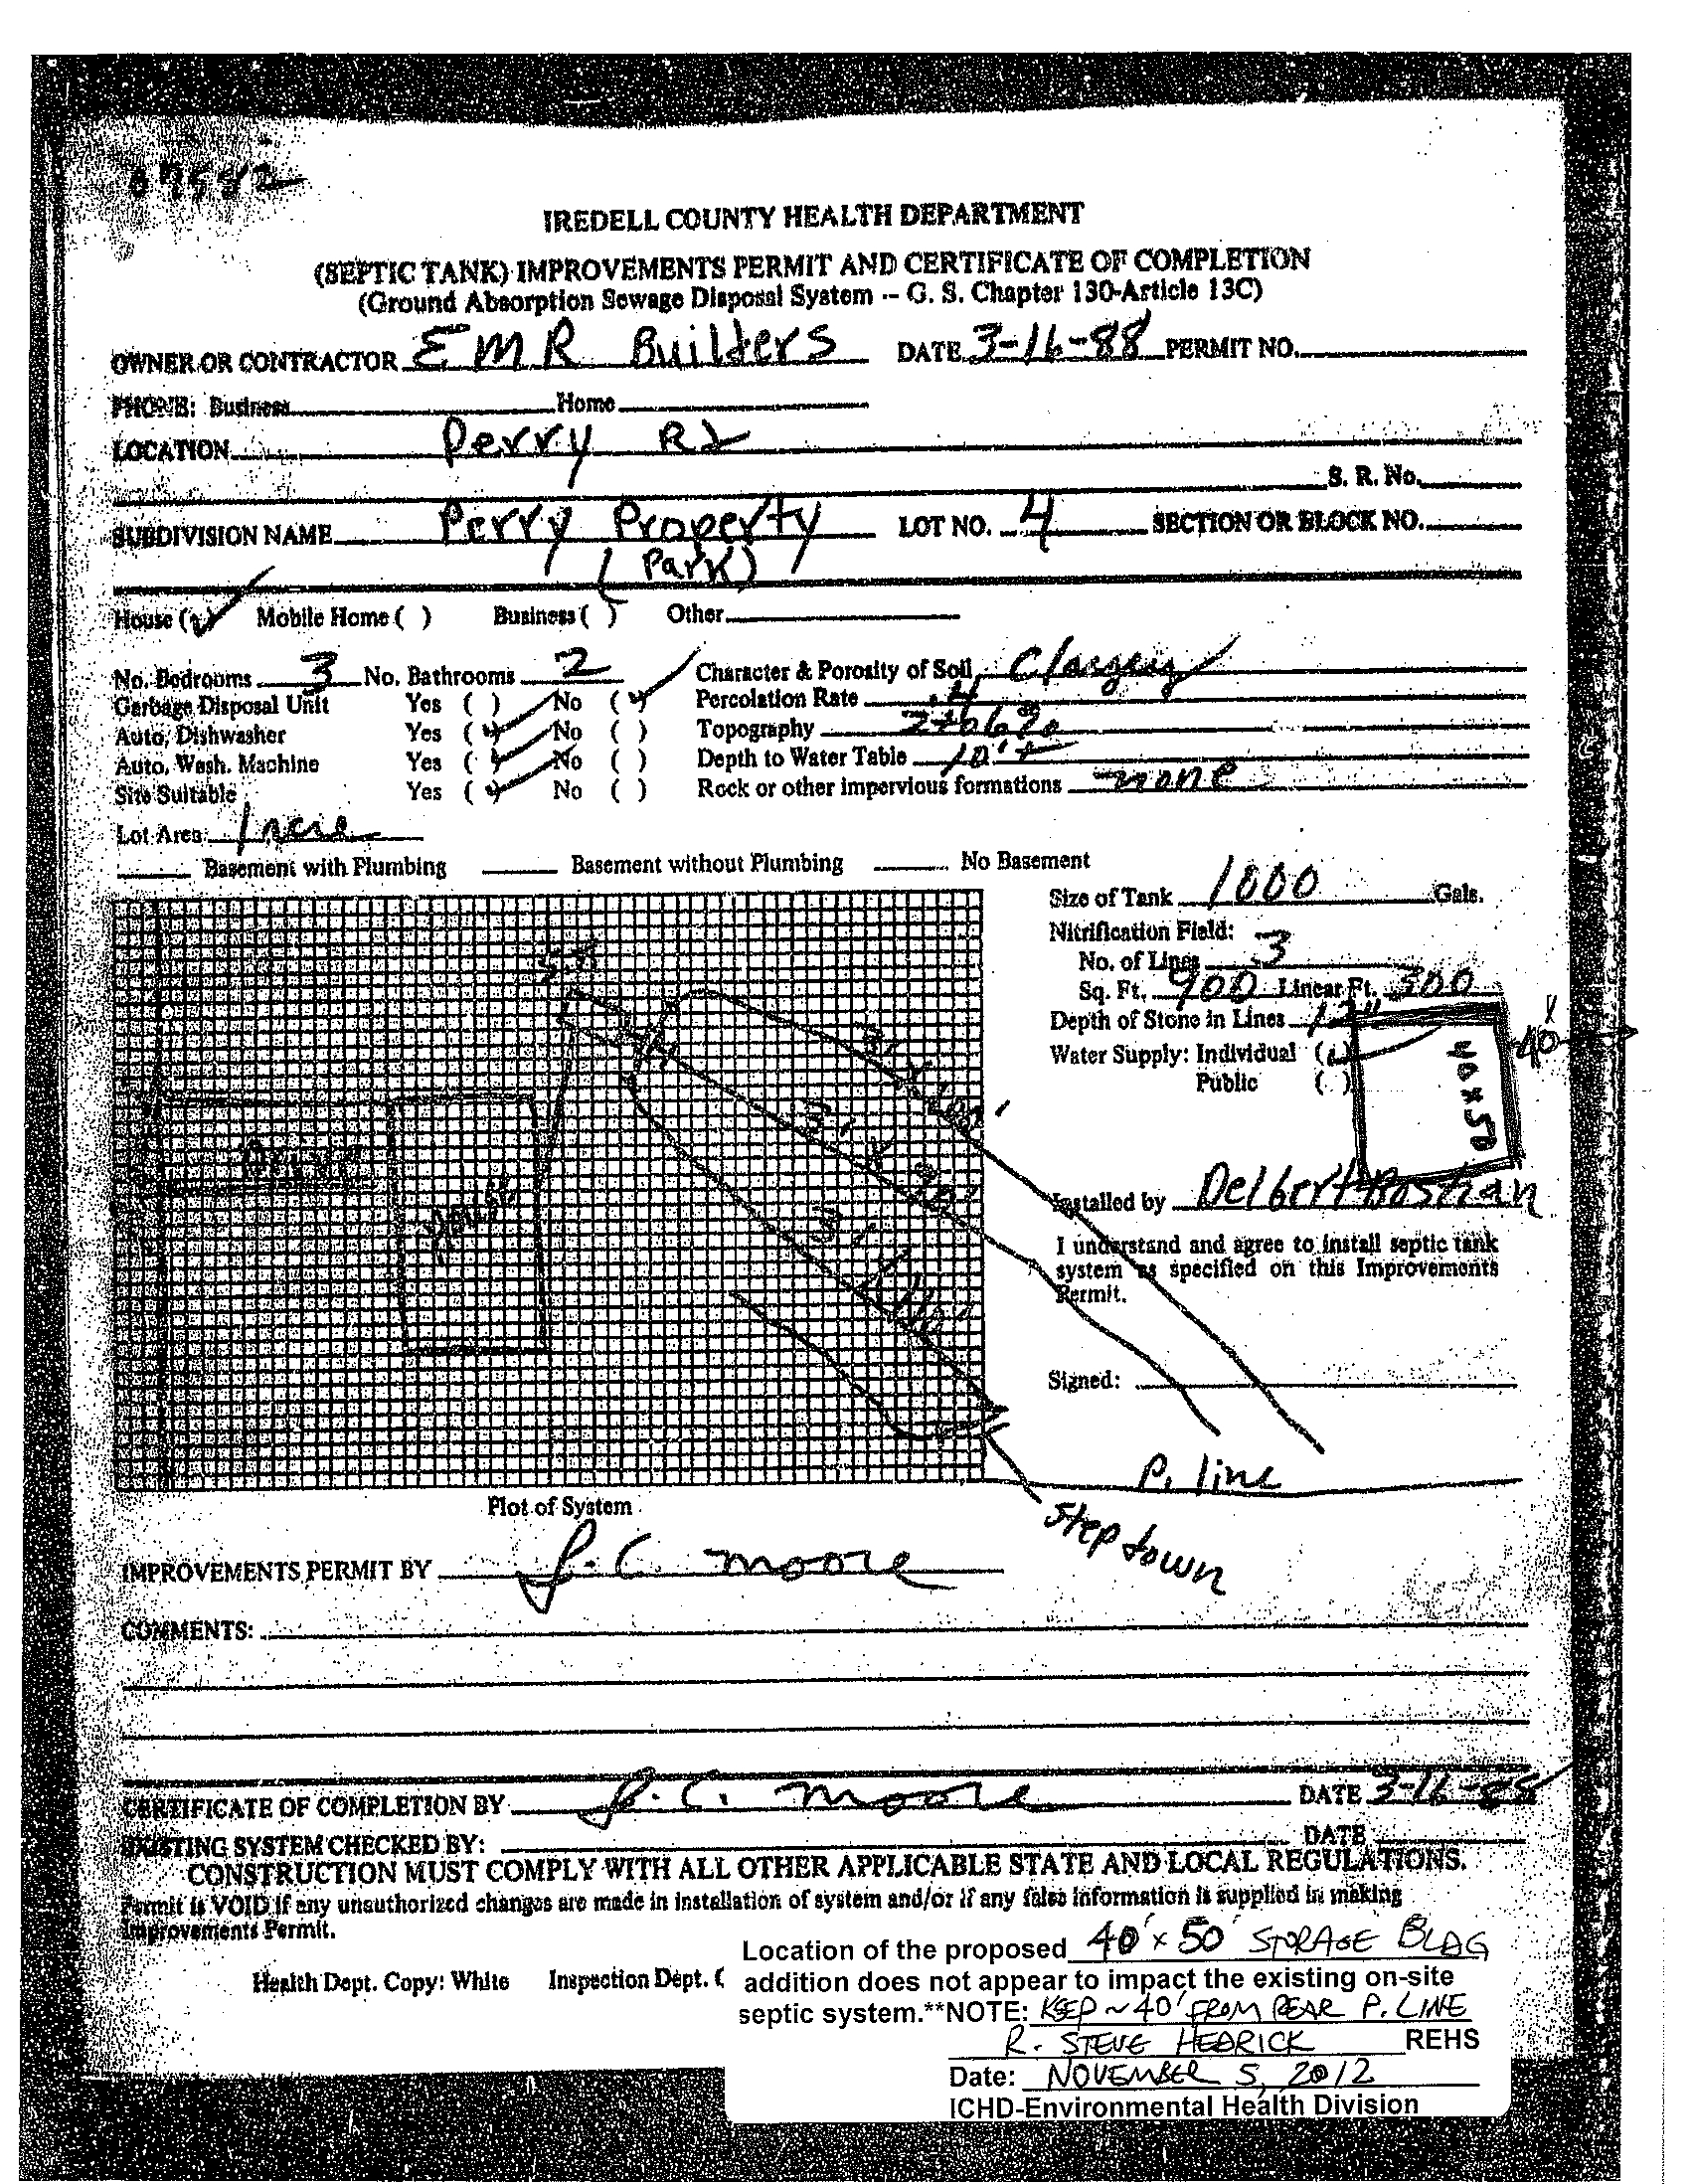 07582
IREDELL COUNTY HEALTH DEPARTMENT
(SEPTIC TANK) IMPROVEMENTS PERMIT AND CERTIFICATE OF COMPLETION
(Ground Absorption Sewage Disposal System -- G. S. Chapter 130-Article 13C)
OWNER OR CONTRACTOR EMR Builders DATE 3-16-88 PERMIT NO.
PHONE: Business Home
LOCATION Perry Rd
S. R. No.
SUBDIVISION NAME Perry Property LOT NO. 4 SECTION OR BLOCK NO.
(Park)
House (✓) Mobile Home ( ) Business ( ) Other
No. Bedrooms 3 No. Bathrooms 2 Character & Porosity of Soil Clayey
Garbage Disposal Unit Yes ( ) No (✓) Percolation Rate .4
Auto, Dishwasher Yes (✓) No ( ) Topography 2 to 6%
Auto, Wash. Machine Yes (✓) No ( ) Depth to Water Table 10'+
Site Suitable Yes (✓) No ( ) Rock or other impervious formations none
Lot Area 1 acre
Basement with Plumbing Basement without Plumbing No Basement
Size of Tank 1000 Gals.
Nitrification Field:
No. of Lines 3
Sq. Ft. 900 Linear Ft. 300
Depth of Stone in Lines 12"
Water Supply: Individual (✓)
Public ( )
40'
40x50
House
3' x 100'
3' x
3' x
Installed by Delbert Bostian
I understand and agree to install septic tank
system as specified on this Improvements
Permit.
Signed:
P. line
Step down
Plot of System
IMPROVEMENTS PERMIT BY J. C. Moore
COMMENTS:
CERTIFICATE OF COMPLETION BY J. C. Moore DATE 3-16-88
EXISTING SYSTEM CHECKED BY: DATE
CONSTRUCTION MUST COMPLY WITH ALL OTHER APPLICABLE STATE AND LOCAL REGULATIONS.
Permit is VOID if any unauthorized changes are made in installation of system and/or if any false information is supplied in making
Improvements Permit.
Health Dept. Copy: White Inspection Dept. C
Location of the proposed 40' x 50' STORAGE BLDG
addition does not appear to impact the existing on-site
septic system.**NOTE: KEEP ~40' FROM REAR P. LINE
R. STEVE HEDRICK REHS
Date: NOVEMBER 5, 2012
ICHD-Environmental Health Division